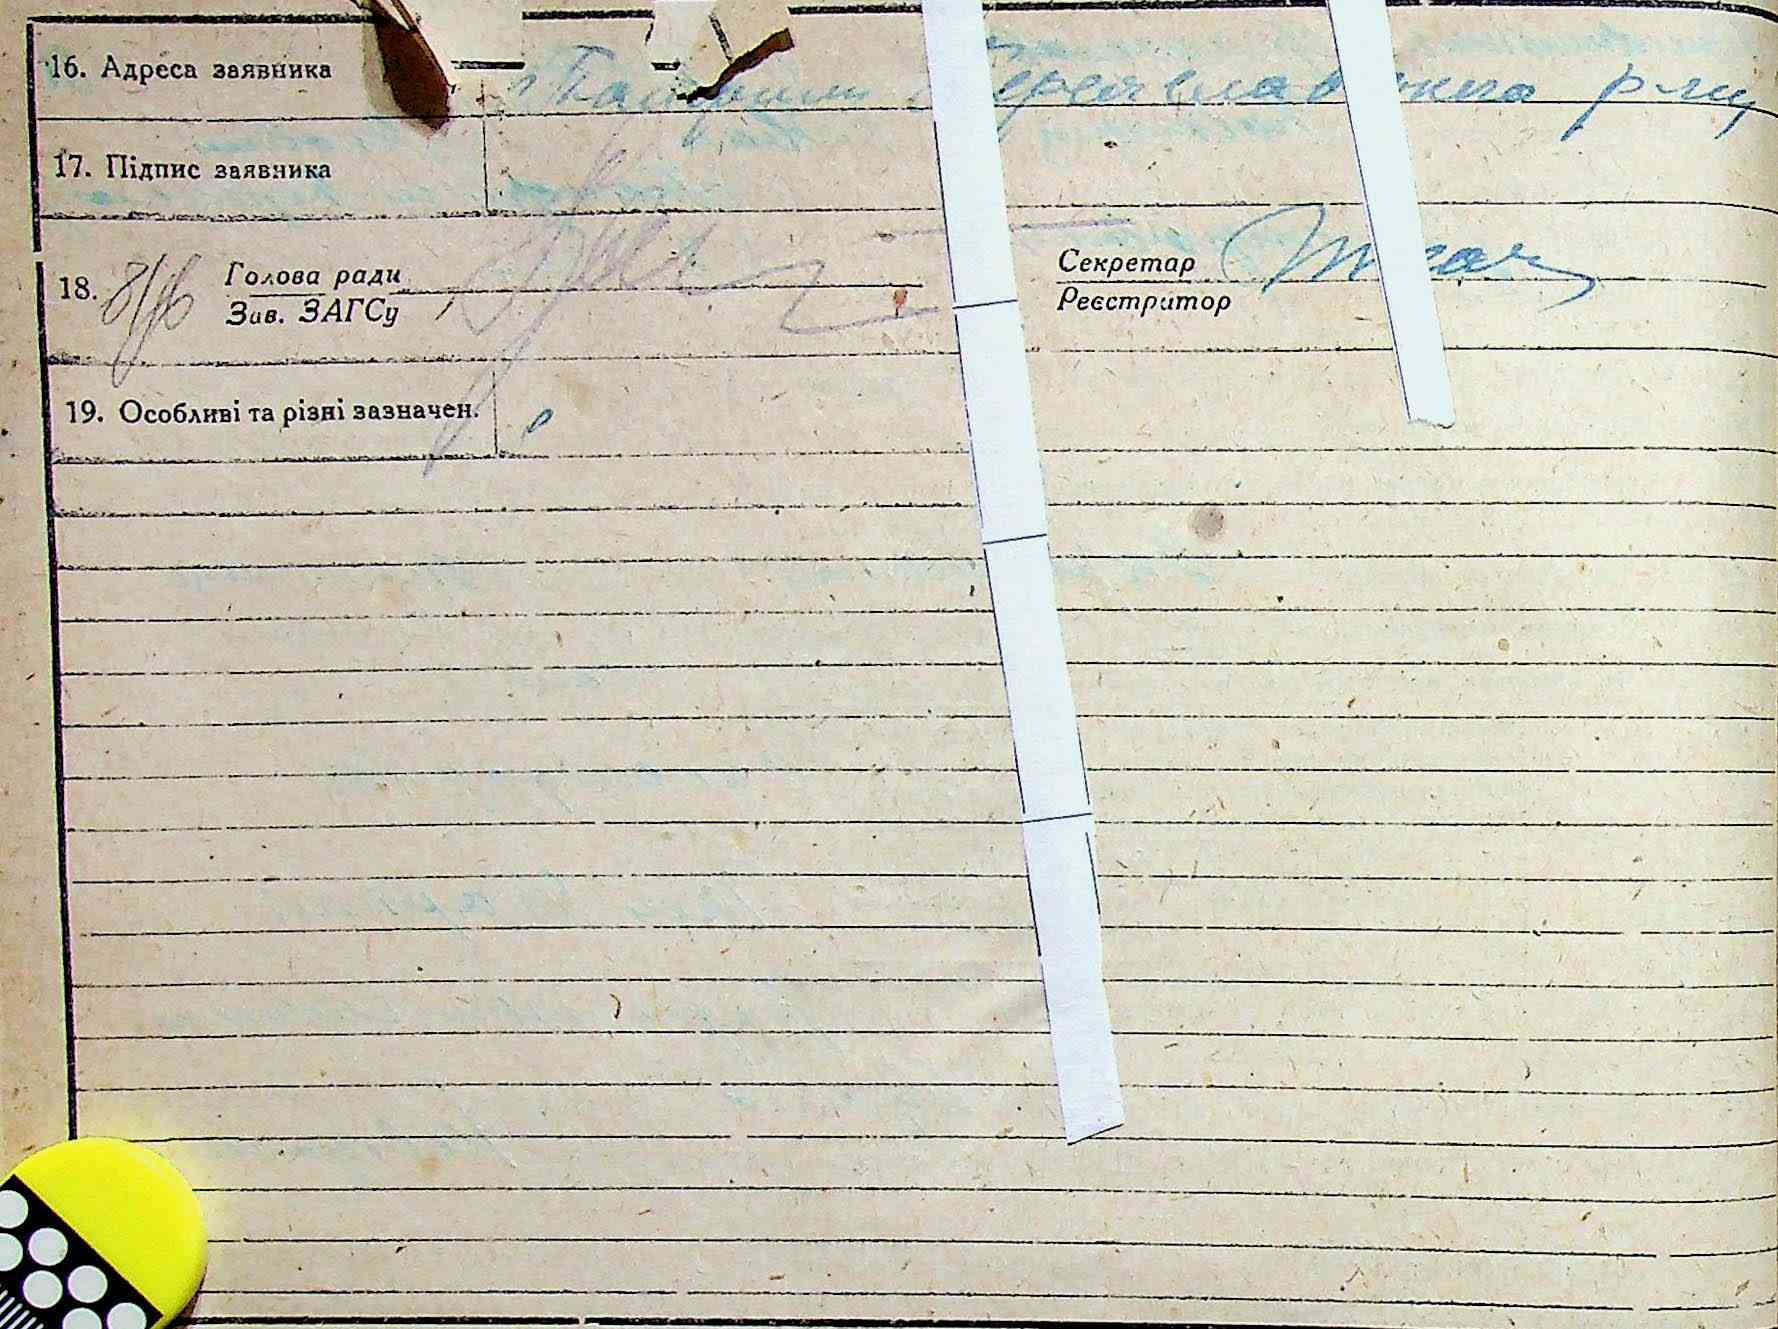 16. Адреса заявника Переяславського р-ну
17. Підпис заявника
18. Голова ради
Зав. ЗАГСу
Секретар Ткач
Реєстритор
19. Особливі та різні зазначен.